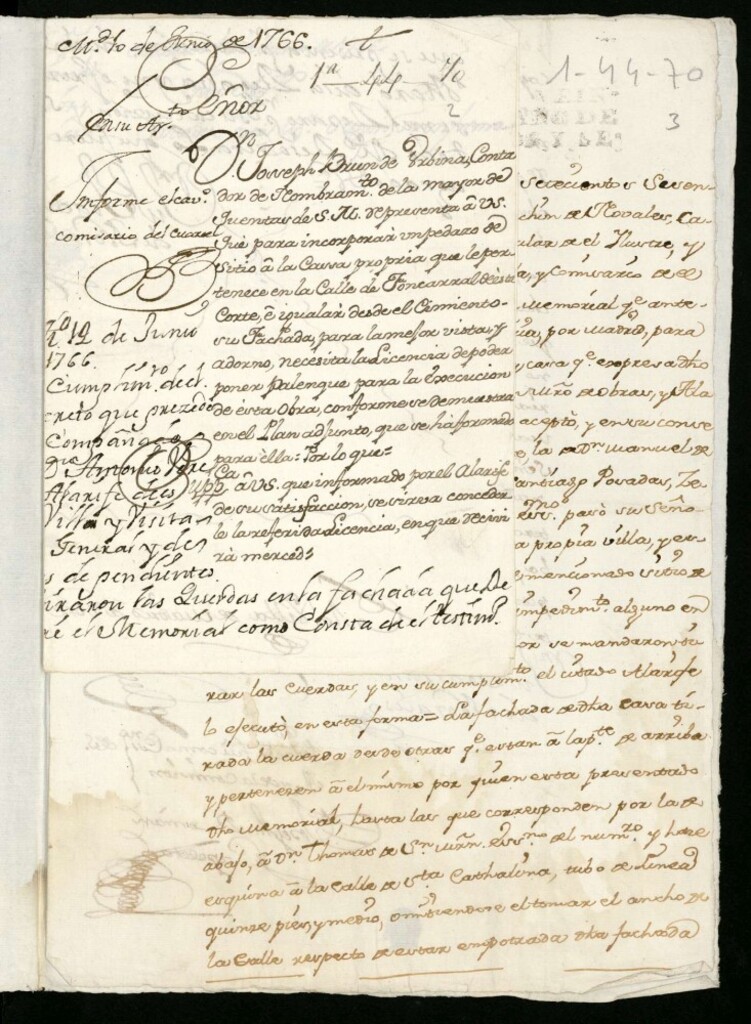 M.d 10 de Junio de 1766. t
1ª 44 70
2
1-44-70
3
Señor
En su Ay.to
D.n Joseph Brun de Urbina, Conta
dor de Nombram.to de la mayor de
Quentas de S. M. de presenta â VS.
Informe el cav.o
comisario del Cuartel
Que para incorporar un pedazo de
sitio â la Cassa propria que le per
tenece en la Calle de Foncarral de esta
Corte, è igualar desde el Cimiento
su Fachada, para la mejor vista, y
adorno, necesita la Licencia de poder
poner Palenque para la Execucion
de esta Obra, conforme se demuestra
en el Plan adjunto, que se ha formado
para ella: Por lo que=
Supp.ca â VS. que informado por el Alarife
de su satisfaccion, se sirva conceder
le la referida Licencia, en que recivi
rà merced=
12 de Junio
1766.
Cumplim.to del
creto que precede
Compañ
D.n Antonio
Alarife de es
Villa y Visita
General y de
s dependientes
tiraron las Querdas en la fachada que Re
re el Memorial como Consta del testim.o
Setecientos Sesen-
chin de Novales, Ca
lar de el Ilustre, y
a, y Comisario de el
Memorial q.e ante-
por Madrid, para
y casa q.e expresa dho
Mrô de obras, y Ala
acepto, y en su conse
la D.n Manuel de
y Posadas, Te
pasò su Seño-
a propia villa, y en
mencionado sitio de
impedim.to alguno en
or se mandaron ti
rar las cuerdas, y en su cumplim.to el citado Alarife
lo ejecutò, en esta forma= La fachada de dha casa ti-
rada la cuerda desde otras q.e estan â la p.te de arriba
y pertenecen â el mismo por quien esta presentado
dho Memorial, hasta las que corresponden por la de
abajo, â D.n Thomas de S.n Juan ess.no del num.ro y hace
esquina â la Calle de S.ta Cathalina, tubo de linea
quince pies, y medio, omitiendose el tomar el ancho de
la Calle respecto de estar empotrada dha fachada